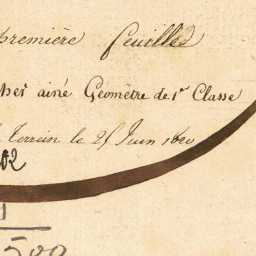 première feuille
aîné Géomètre de 1r Classe
Terrein le 25 Juin 1820
02
500